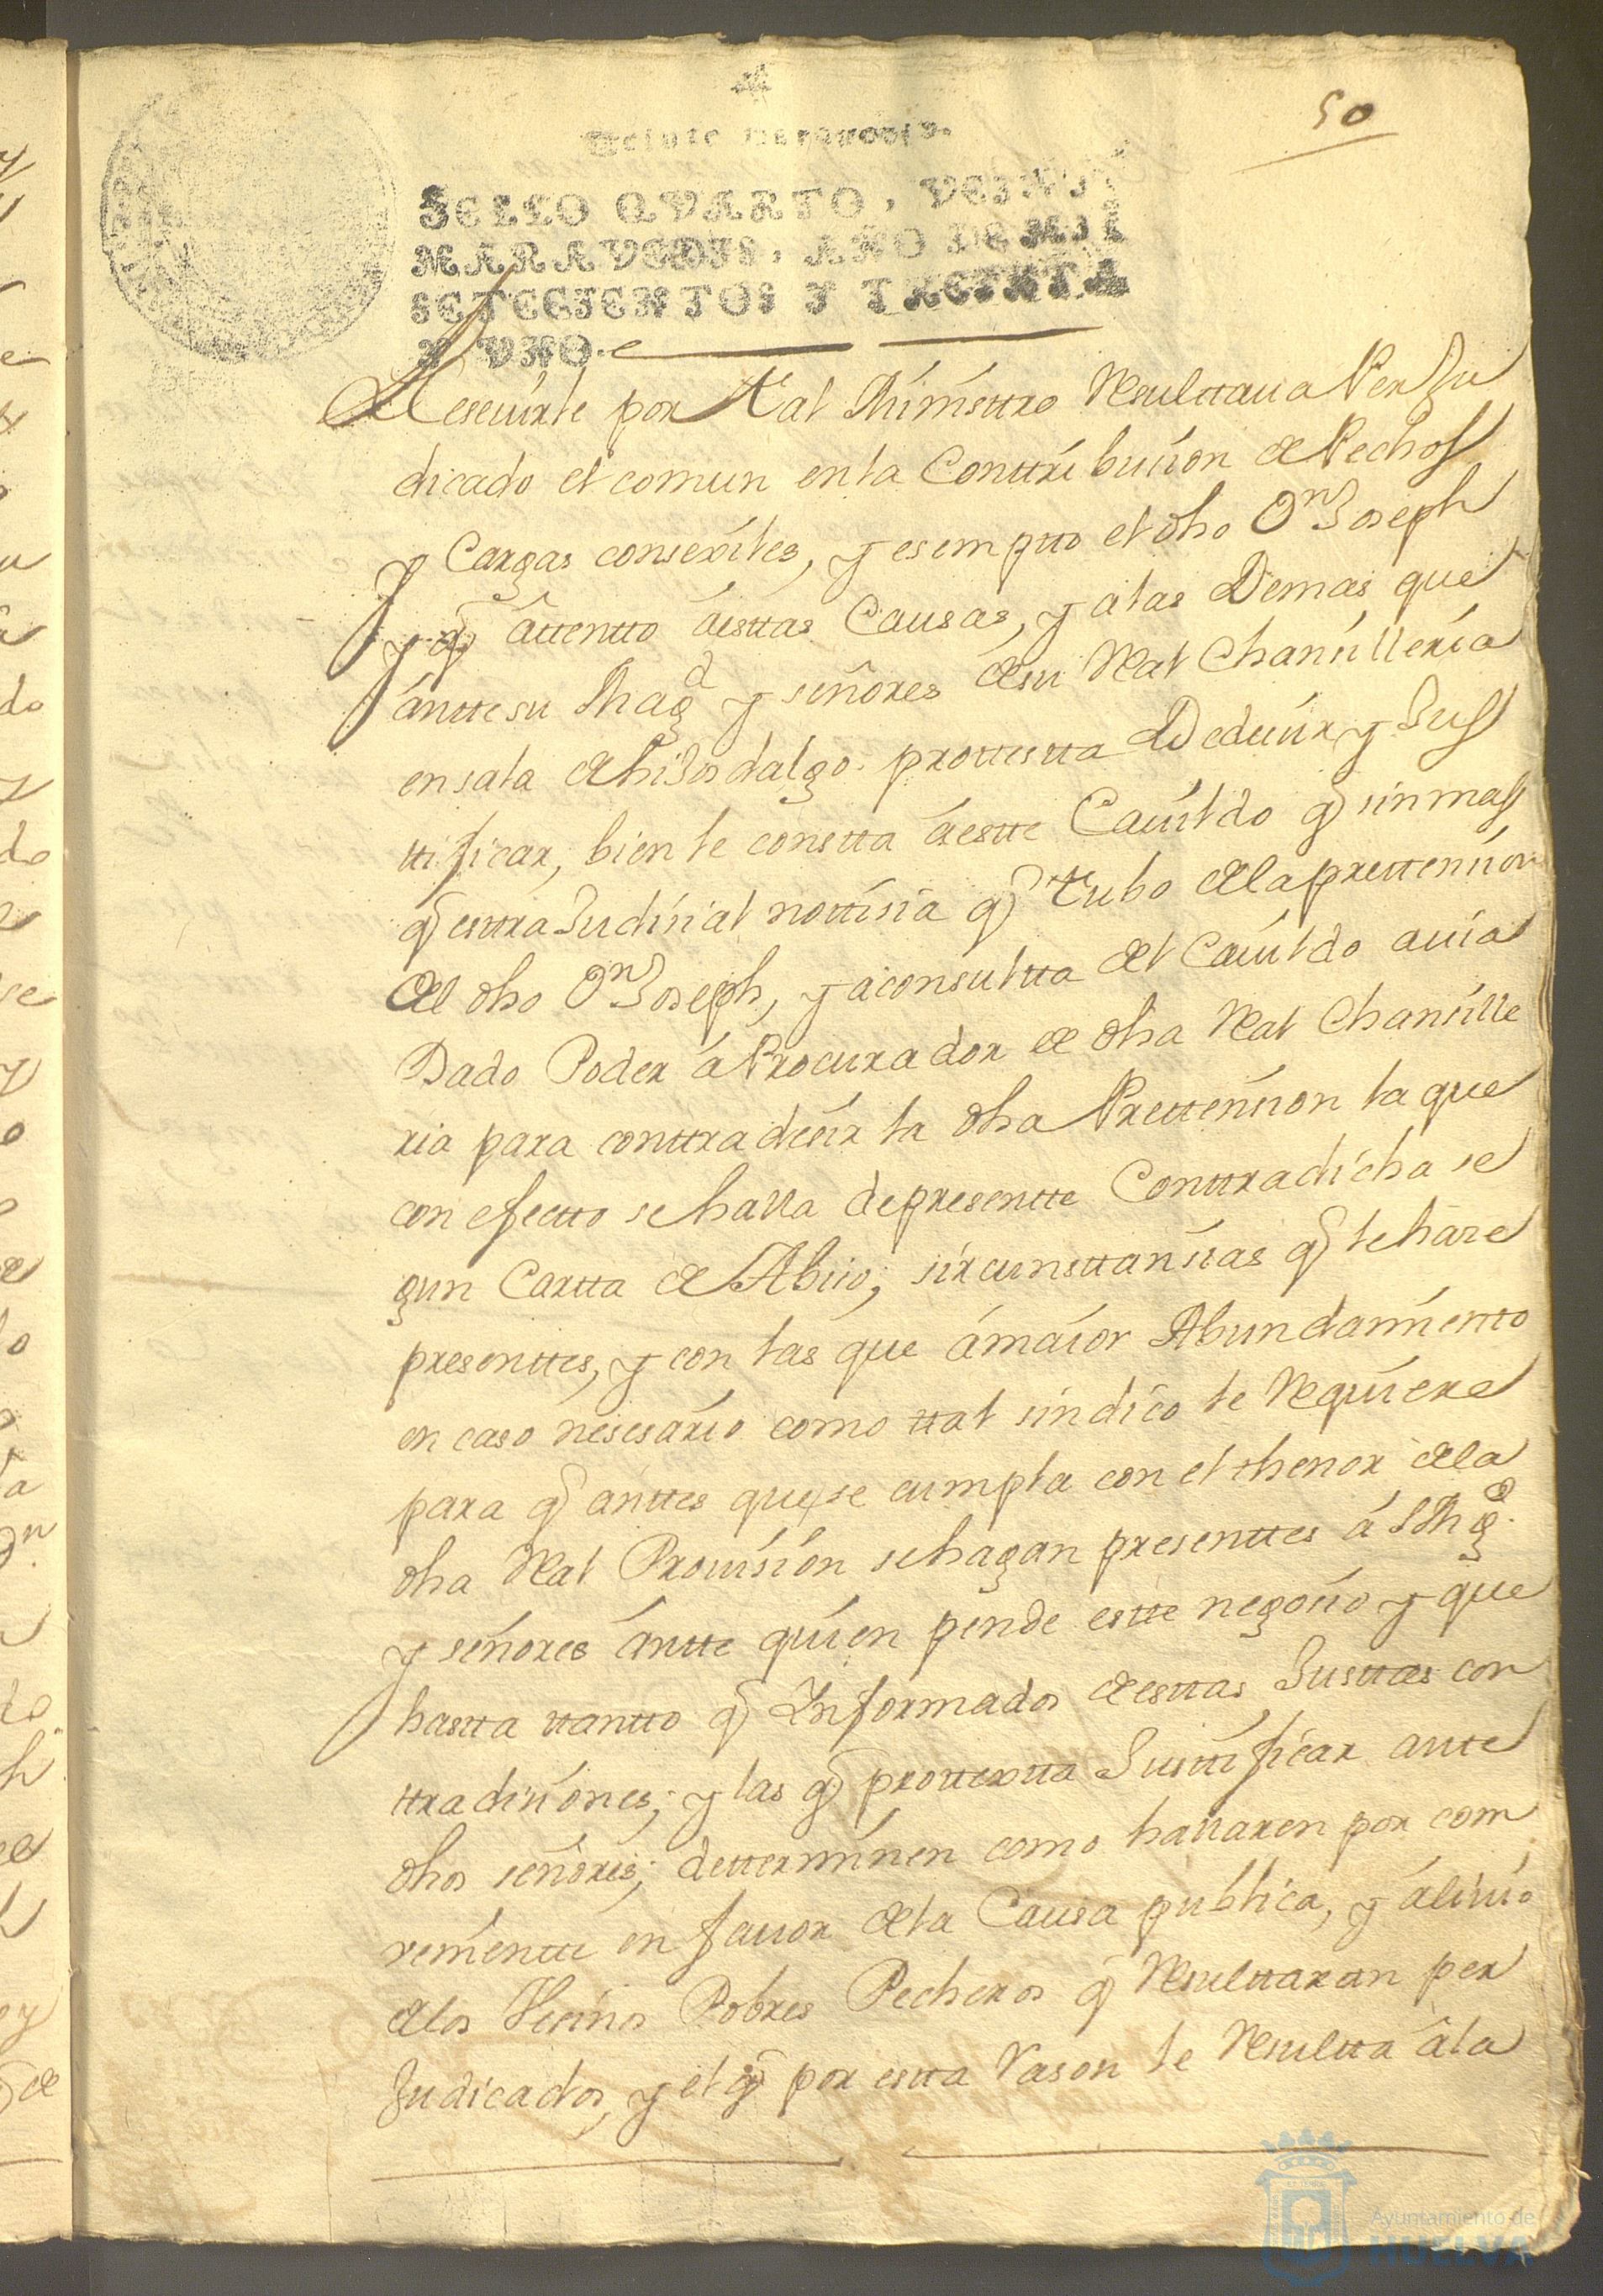 50
Veinte maravedis.
SELLO QVARTO, VEINT
MARAVEDIS, AÑO DE MIL
SETECIENTOS Y TREINTA
Y VNO.
Reseuirle por tal Ministtro Resulttaua Perju
dicado el comun en la Conttribucion de Pechos
y Cargas consexiles, y esempto el dho Dn Joseph
y q attentto a esttas Causas, y a las Demas que
antte su Magd y señores de su Real Chansilleria
en sala de hijosdalgo protestta Deducir y Jus
ttificar, bien le constta a estte Cauildo q sin mas
q esttrajudisial nottisia q tubo de la prettencion
del dho Dn Joseph, y a consultta del Cauildo auia
Dado Poder a Procurador de dha Real Chansille
ria para conttradesir la dha Prettencion la que
con efectto se halla de presentte Conttradicha se
gun Cartta de Abiso; sircunsttansias q le hase
presenttes, y con las que a maior Abundamiento
en caso nesesario como ttal sindico le Requiere
para q anttes que se cumpla con el thenor de la
dha Real Prouision se hagan presenttes a S Mgd.
y señores antte quien pende estte negosio y que
hastta ttantto q Informados de esttas Justtas con
ttradiciones; y las q protextta Justtificar ante
dhos señores; detterminen como hallaren por com
benientte en fauor de la Causa publica, y aliuio
de los Vesinos Pobres Pecheros q Resulttaran per
Judicados, y el q por estta Rason le Resultta a la
Ayuntamiento de
HUELVA